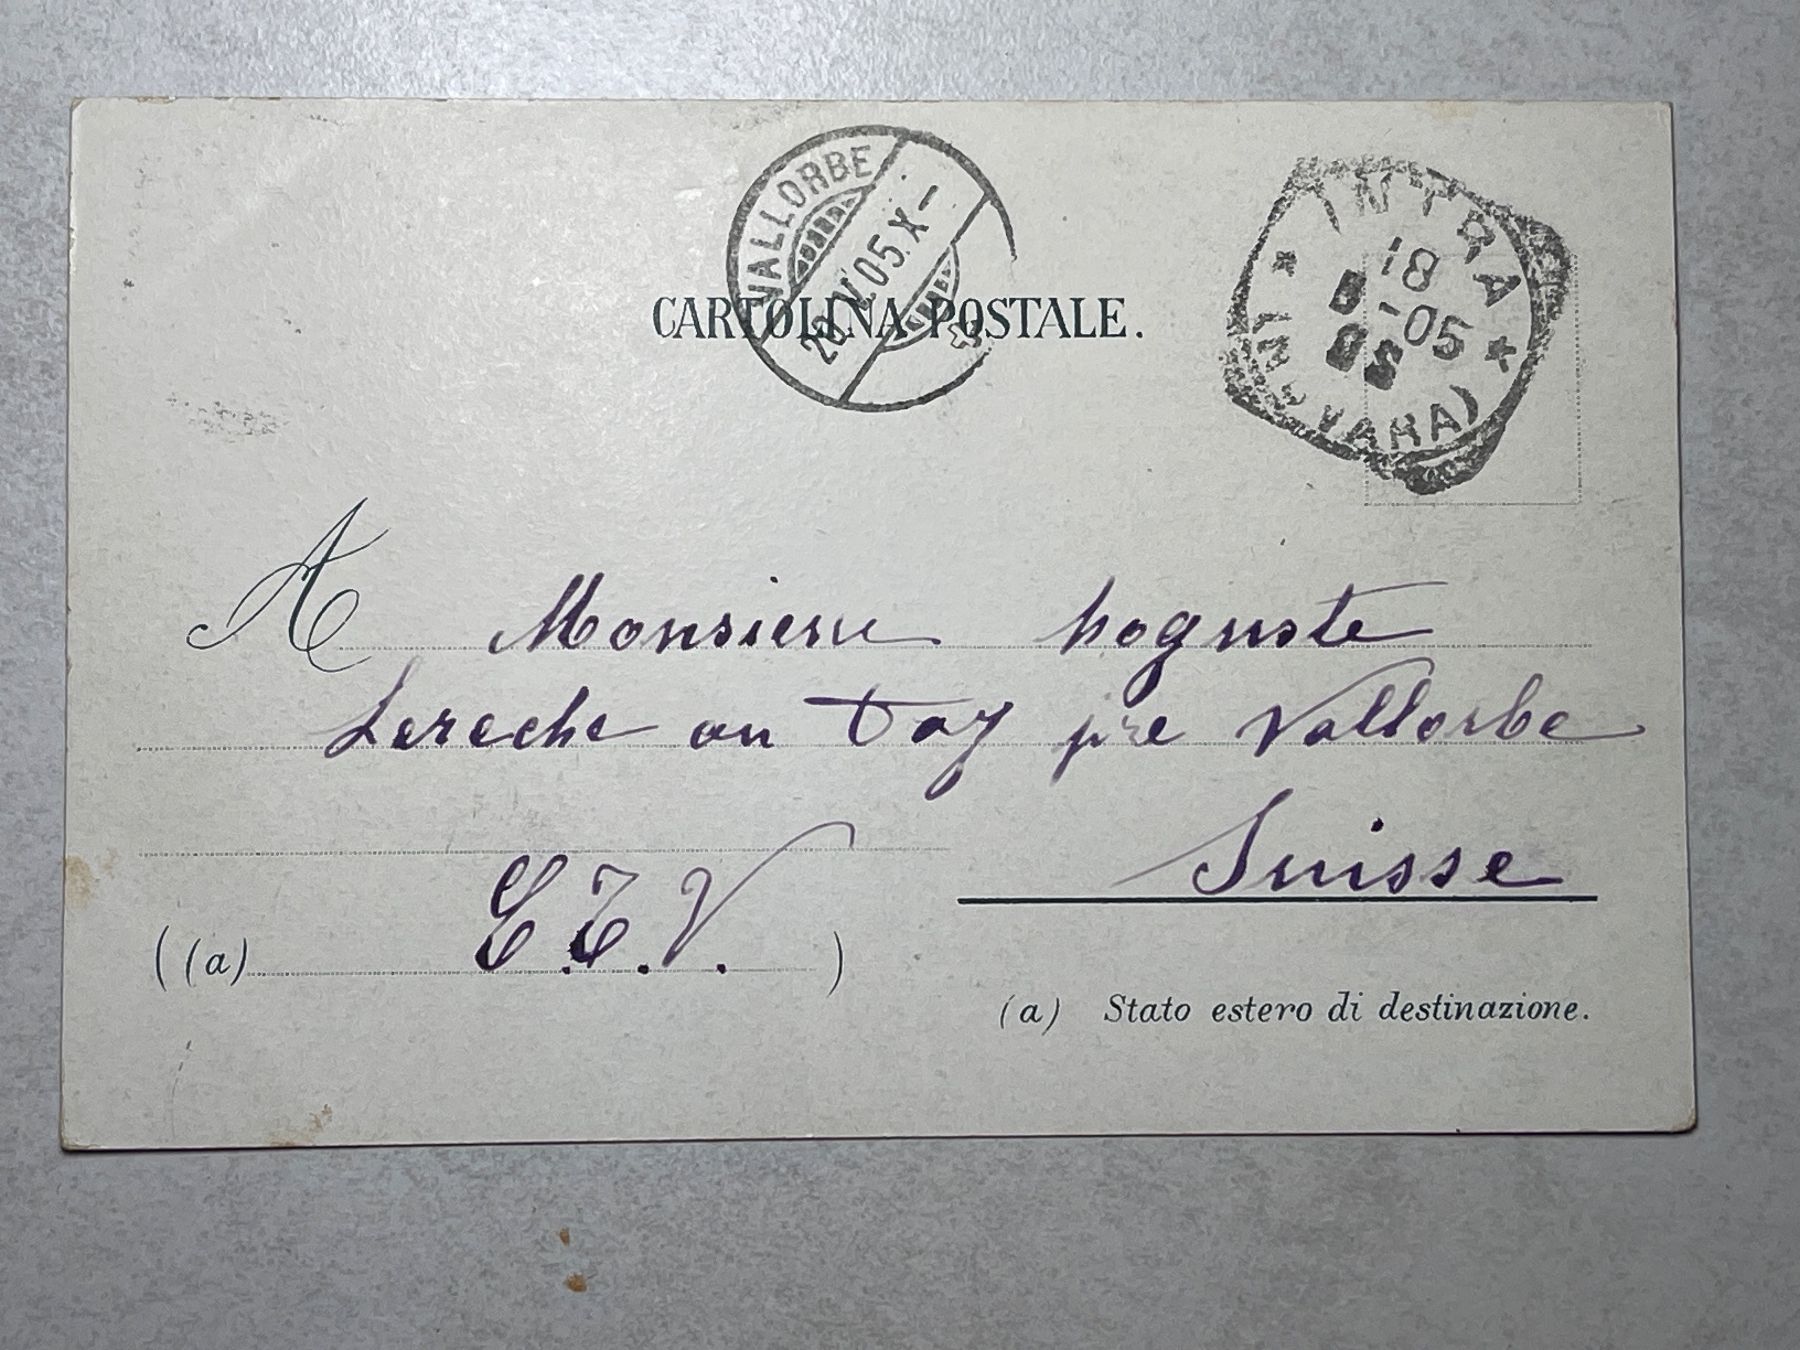 VALLORBE
20.V.05.X-
INTRA
18
-05
CARTOLINA POSTALE.
A Monsieur hoguste
Lereche au Day pre Vallorbe
Suisse
((a) C.T.V. )
(a) Stato estero di destinazione.